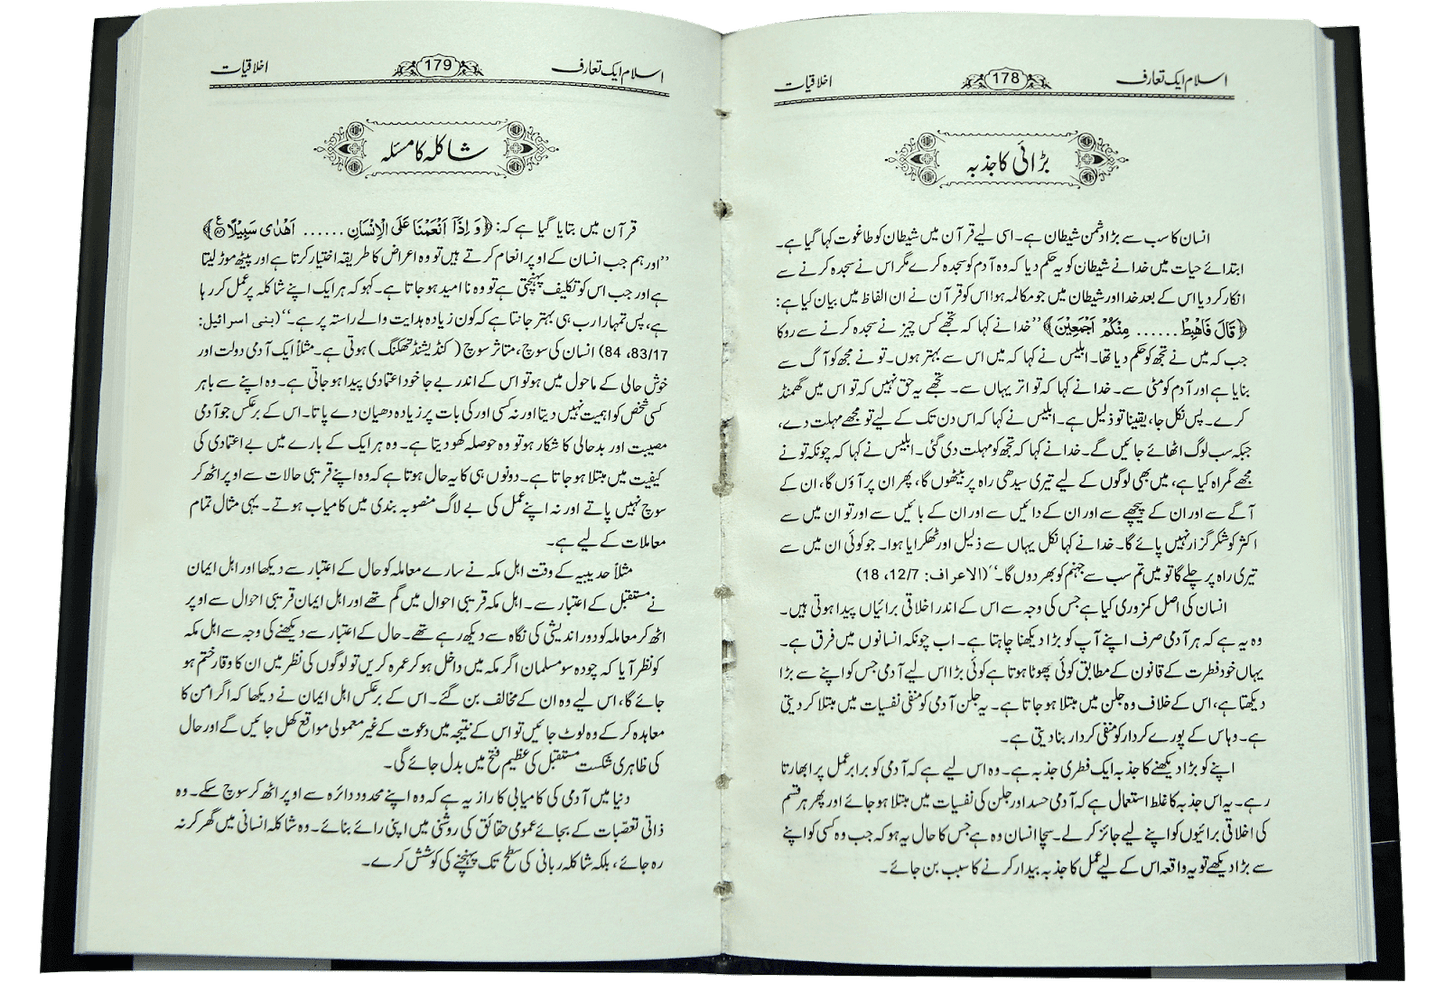 اسلام ایک تعارف 178 اخلاقیات
بڑائی کا جذبہ
انسان کا سب سے بڑا دشمن شیطان ہے۔ اسی لیے قرآن میں شیطان کو طاغوت کہا گیا ہے۔
ابتدائے حیات میں خدا نے شیطان کو یہ حکم دیا کہ وہ آدم کو سجدہ کرے مگر اس نے سجدہ کرنے سے
انکار کر دیا اس کے بعد خدا اور شیطان میں جو مکالمہ ہوا اس کو قرآن نے ان الفاظ میں بیان کیا ہے:
﴿قَالَ فَاهْبِطْ...... مِنْكُمْ اَجْمَعِيْنَ﴾ ”خدا نے کہا کہ تجھے کس چیز نے سجدہ کرنے سے روکا
جب کہ میں نے تجھ کو حکم دیا تھا۔ ابلیس نے کہا کہ میں اس سے بہتر ہوں۔ تو نے مجھ کو آگ سے
بنایا ہے اور آدم کو مٹی سے۔ خدا نے کہا کہ تو اتر یہاں سے۔ تجھے یہ حق نہیں کہ تو اس میں گھمنڈ
کرے۔ پس نکل جا، یقیناً تو ذلیل ہے۔ ابلیس نے کہا کہ اس دن تک کے لیے تو مجھے مہلت دے،
جبکہ سب لوگ اٹھائے جائیں گے۔ خدا نے کہا کہ تجھ کو مہلت دی گئی۔ ابلیس نے کہا کہ چونکہ تو نے
مجھے گمراہ کیا ہے، میں بھی لوگوں کے لیے تیری سیدھی راہ پر بیٹھوں گا، پھر ان پر آؤں گا، ان کے
آگے سے اور ان کے پیچھے سے اور ان کے دائیں سے اور ان کے بائیں سے اور تو ان میں سے
اکثر کو شکر گزار نہیں پائے گا۔ خدا نے کہا نکل یہاں سے ذلیل اور ٹھکرایا ہوا۔ جو کوئی ان میں سے
تیری راہ پر چلے گا تو میں تم سب سے جہنم کو بھر دوں گا۔“ (الاعراف: 12/7، 18)
انسان کی اصل کمزوری کیا ہے جس کی وجہ سے اس کے اندر اخلاقی برائیاں پیدا ہوتی ہیں۔
وہ یہ ہے کہ ہر آدمی صرف اپنے آپ کو بڑا دیکھنا چاہتا ہے۔ اب چونکہ انسانوں میں فرق ہے۔
یہاں خود فطرت کے قانون کے مطابق کوئی چھوٹا ہوتا ہے کوئی بڑا اس لیے آدمی جس کو اپنے سے بڑا
دیکھتا ہے، اس کے خلاف وہ جلن میں مبتلا ہو جاتا ہے۔ یہ جلن آدمی کو منفی نفسیات میں مبتلا کر دیتی
ہے۔ وہ اس کے پورے کردار کو منفی کردار بنا دیتی ہے۔
اپنے کو بڑا دیکھنے کا جذبہ ایک فطری جذبہ ہے۔ وہ اس لیے ہے کہ آدمی کو برابر عمل پر ابھارتا
رہے۔ یہ اس جذبہ کا غلط استعمال ہے کہ آدمی حسد اور جلن کی نفسیات میں مبتلا ہو جائے اور پھر ہر قسم
کی اخلاقی برائیوں کو اپنے لیے جائز کر لے۔ سچا انسان وہ ہے جس کا حال یہ ہو کہ جب وہ کسی کو اپنے
سے بڑا دیکھے تو یہ واقعہ اس کے لیے عمل کا جذبہ بیدار کرنے کا سبب بن جائے۔
اسلام ایک تعارف 179 اخلاقیات
شاکلہ کا مسئلہ
قرآن میں بتایا گیا ہے کہ: ﴿وَاِذَآ اَنْعَمْنَا عَلَى الْاِنْسَانِ ...... اَهْدٰى سَبِيْلًا﴾
”اور ہم جب انسان کے اوپر انعام کرتے ہیں تو وہ اعراض کا طریقہ اختیار کرتا ہے اور پیٹھ موڑ لیتا
ہے اور جب اس کو تکلیف پہنچتی ہے تو وہ نا امید ہو جاتا ہے۔ کہو کہ ہر ایک اپنے شاکلہ پر عمل کر رہا
ہے، پس تمہارا رب ہی بہتر جانتا ہے کہ کون زیادہ ہدایت والے راستہ پر ہے۔“ (بنی اسرائیل:
83/17، 84) انسان کی سوچ، متاثر سوچ (کنڈیشنڈ تھنکنگ) ہوتی ہے۔ مثلاً ایک آدمی دولت اور
خوش حالی کے ماحول میں ہو تو اس کے اندر بے جا خود اعتمادی پیدا ہو جاتی ہے۔ وہ اپنے سے باہر
کسی شخص کو اہمیت نہیں دیتا اور نہ کسی اور کی بات پر زیادہ دھیان دے پاتا۔ اس کے برعکس جو آدمی
مصیبت اور بدحالی کا شکار ہو تو وہ حوصلہ کھو دیتا ہے۔ وہ ہر ایک کے بارے میں بے اعتمادی کی
کیفیت میں مبتلا ہو جاتا ہے۔ دونوں ہی کا یہ حال ہوتا ہے کہ وہ اپنے قریبی حالات سے اوپر اٹھ کر
سوچ نہیں پاتے اور نہ اپنے عمل کی بے لاگ منصوبہ بندی میں کامیاب ہوتے۔ یہی مثال تمام
معاملات کے لیے ہے۔
مثلاً حدیبیہ کے وقت اہل مکہ نے سارے معاملہ کو حال کے اعتبار سے دیکھا اور اہل ایمان
نے مستقبل کے اعتبار سے۔ اہل مکہ قریبی احوال میں گم تھے اور اہل ایمان قریبی احوال سے اوپر
اٹھ کر معاملہ کو دور اندیشی کی نگاہ سے دیکھ رہے تھے۔ حال کے اعتبار سے دیکھنے کی وجہ سے اہل مکہ
کو نظر آیا کہ چودہ سو مسلمان اگر مکہ میں داخل ہو کر عمرہ کریں تو لوگوں کی نظر میں ان کا وقار ختم ہو
جائے گا، اس لیے وہ ان کے مخالف بن گئے۔ اس کے برعکس اہل ایمان نے دیکھا کہ اگر امن کا
معاہدہ کر کے وہ لوٹ جائیں تو اس کے نتیجہ میں دعوت کے غیر معمولی مواقع کھل جائیں گے اور حال
کی ظاہری شکست مستقبل کی عظیم فتح میں بدل جائے گی۔
دنیا میں آدمی کی کامیابی کا راز یہ ہے کہ وہ اپنے محدود دائرہ سے اوپر اٹھ کر سوچ سکے۔ وہ
ذاتی تعصّبات کے بجائے عمومی حقائق کی روشنی میں اپنی رائے بنائے۔ وہ شاکلہ انسانی میں گھر کر نہ
رہ جائے، بلکہ شاکلہ ربانی کی سطح تک پہنچنے کی کوشش کرے۔